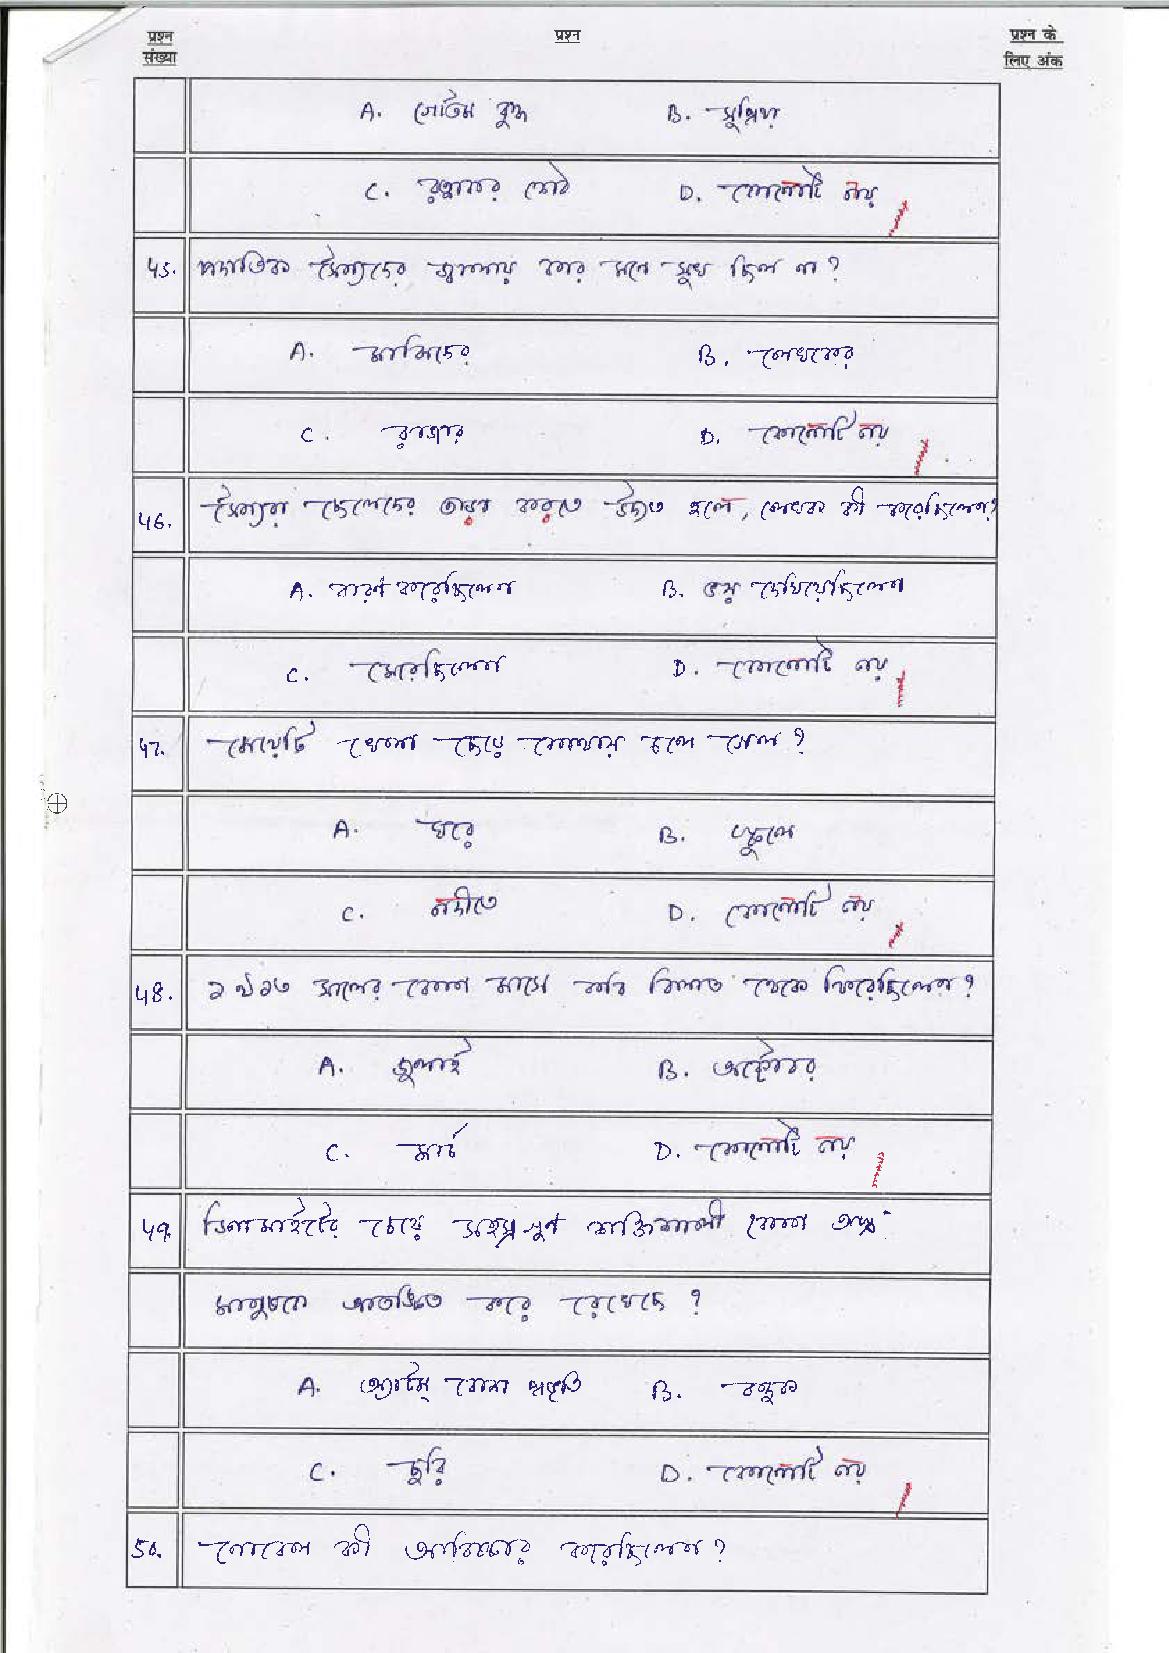 प्रश्न संख्या
प्रश्न
प्रश्न के लिए अंक
A. গৌতম বুদ্ধ B. সুপ্রিয়া
C. রত্নাকর শেঠ D. কোনোটি নয়
45. পদাতিক সৈন্যদের জ্বালায় কার মনে সুখ ছিল না?
A. মাঝিদের B. লেখকের
C. রাজার D. কোনোটি নয়
46. সৈন্যরা ছেলেদের তাড়া করতে উদ্যত হলে, লেখক কী করেছিলেন?
A. বারণ করেছিলেন B. ভয় দেখিয়েছিলেন
C. মেরেছিলেন D. কোনোটি নয়
47. মেয়েটি খেলা ছেড়ে কোথায় চলে গেল?
A. ঘরে B. স্কুলে
C. নদীতে D. কোনোটি নয়
48. ১৯১৩ সালের কোন মাসে কবি বিলাত থেকে ফিরেছিলেন?
A. জুলাই B. অক্টোবর
C. মার্চ D. কোনোটি নয়
49. ডিনামাইটের চেয়ে সহস্রগুণ শক্তিশালী কোন অস্ত্র
মানুষকে আতঙ্কিত করে রেখেছে?
A. অ্যাটম্ বোমা প্রভৃতি B. বন্দুক
C. ছুরি D. কোনোটি নয়
50. নোবেল কী আবিষ্কার করেছিলেন?